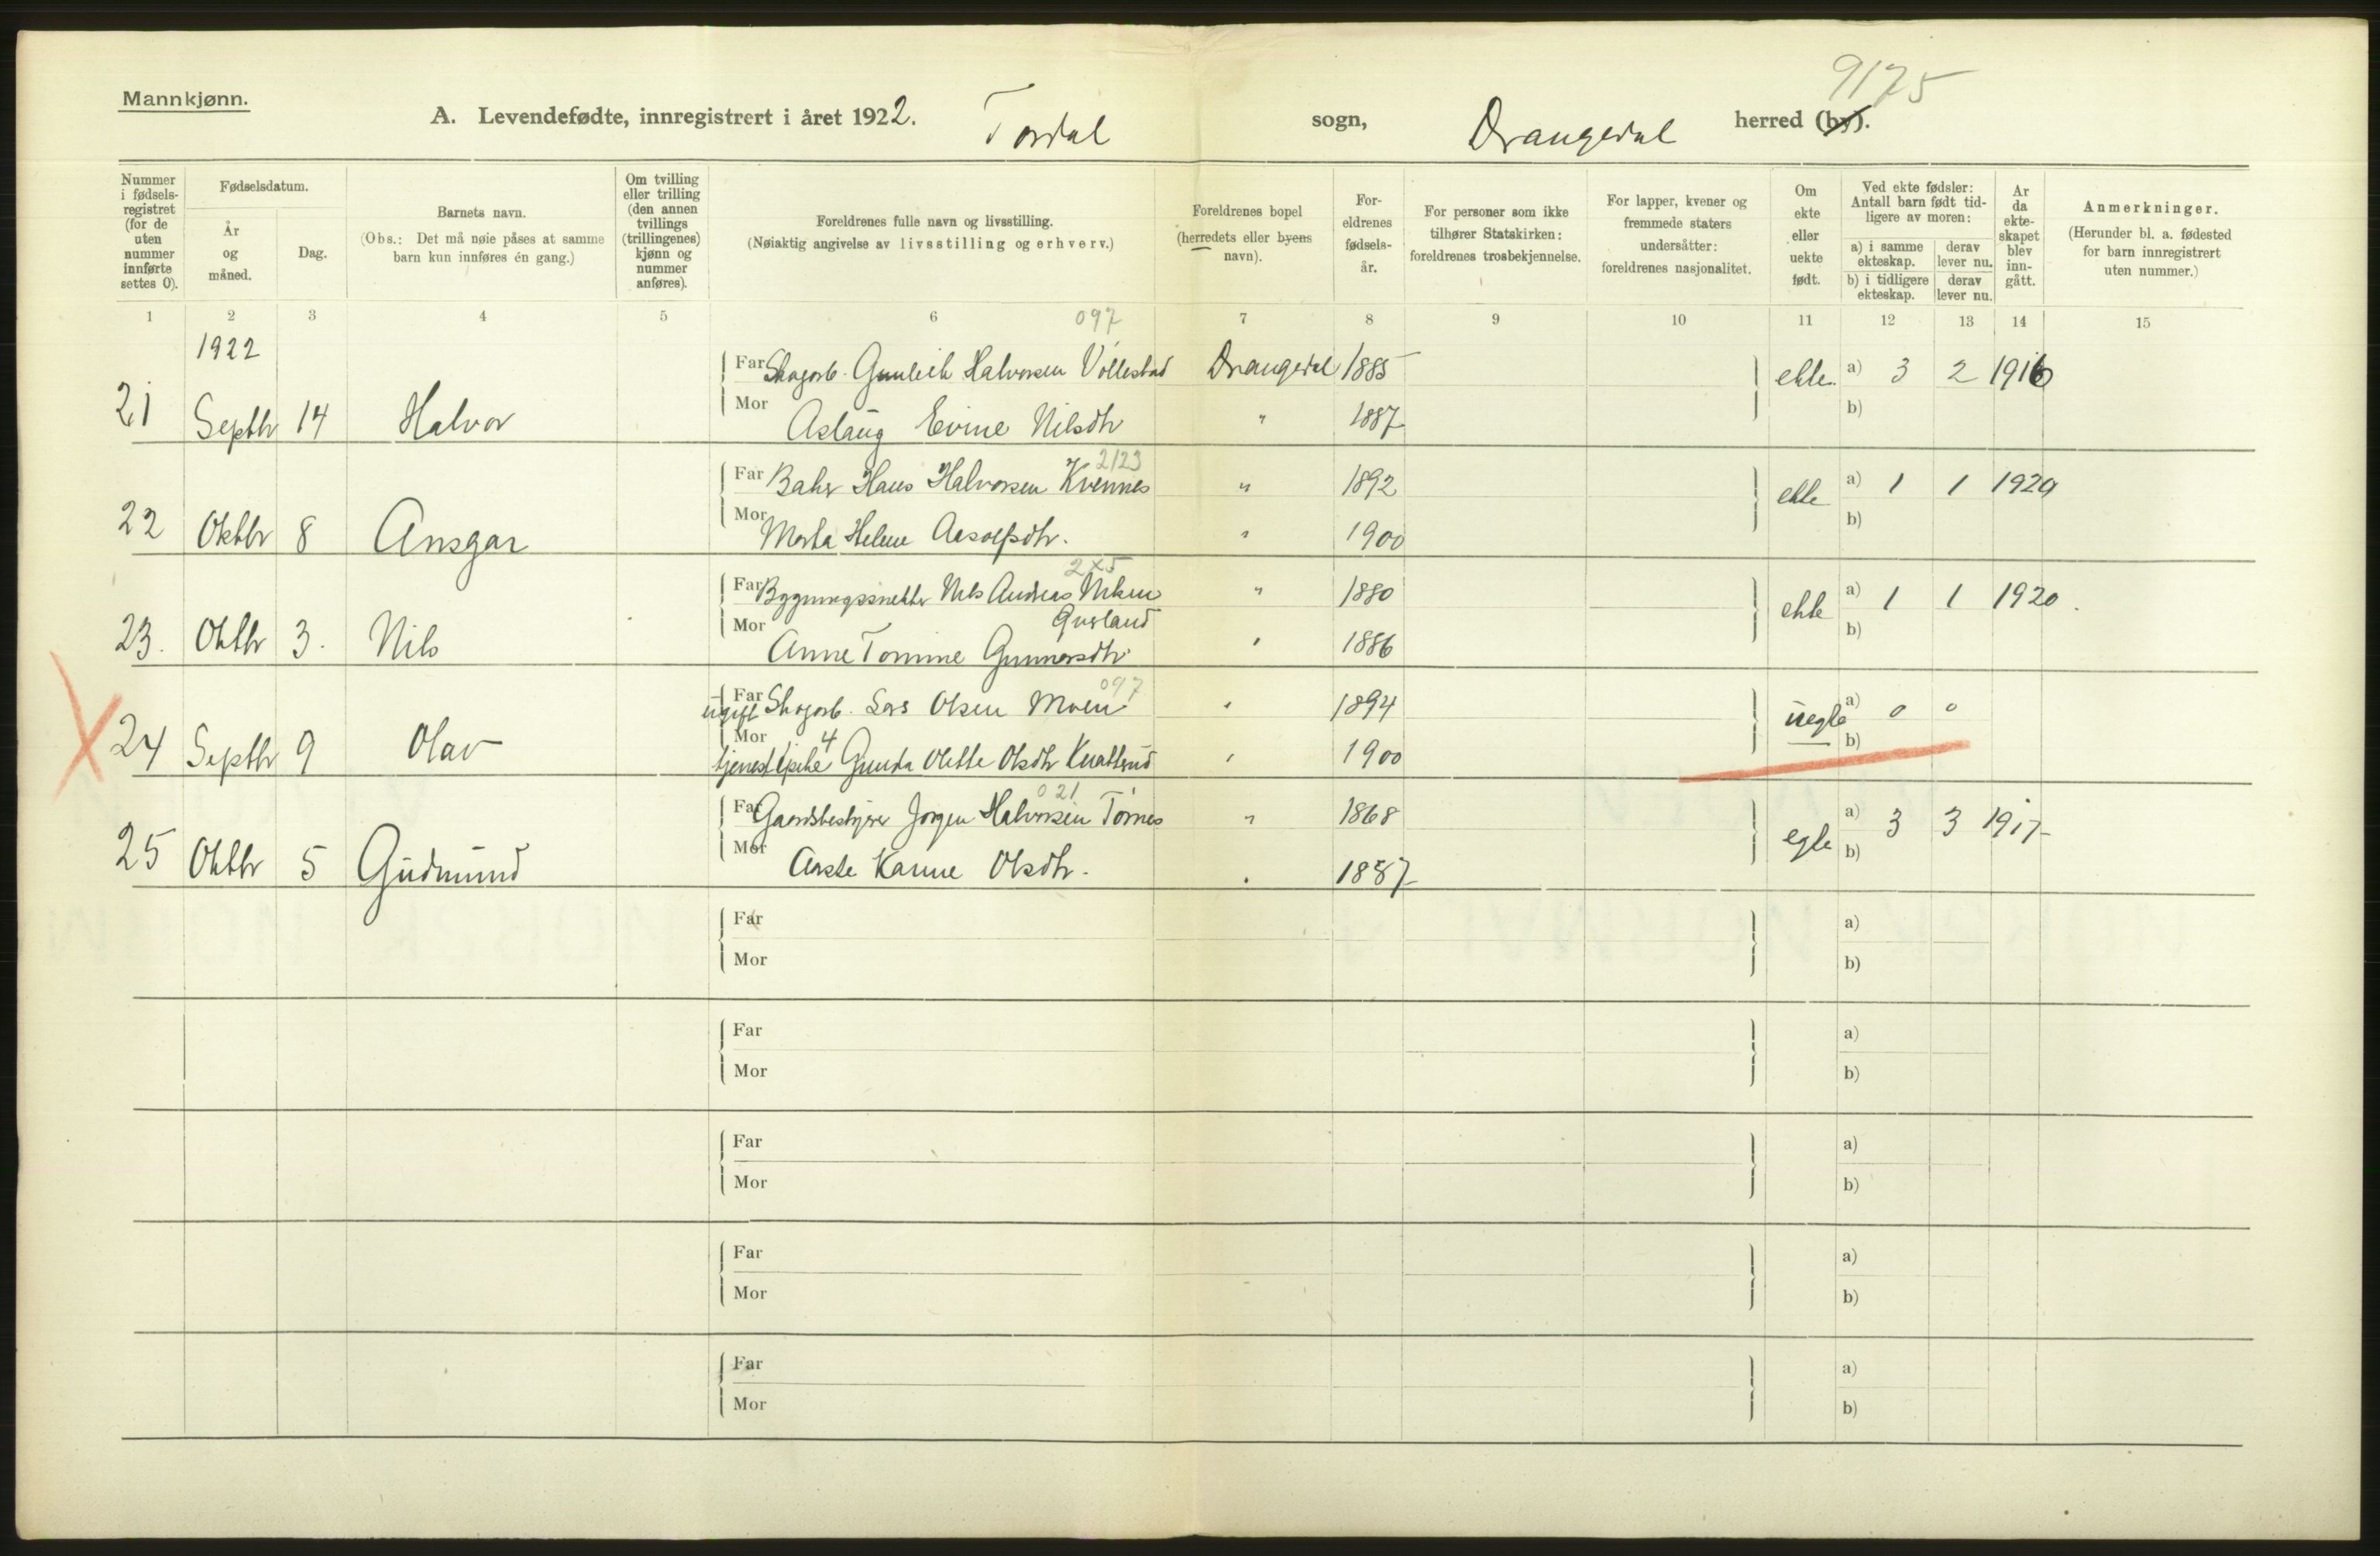 Mannkjønn.
9175
A. Levendefødte, innregistrert i året 1922. Tordal sogn, Drangedal herred (by).
Nummer i fødselsregistret (for de uten nummer innførte settes 0).
Fødselsdatum.
År og måned.
Dag.
Barnets navn.
(Obs.: Det må nøie påses at samme barn kun innføres én gang.)
Om tvilling eller trilling (den annen tvillings (trillingenes) kjønn og nummer anføres).
Foreldrenes fulle navn og livsstilling.
(Nøiaktig angivelse av livsstilling og erhverv.)
Foreldrenes bopel (herredets eller byens navn).
Foreldrenes fødselsår.
For personer som ikke tilhører Statskirken: foreldrenes trosbekjennelse.
For lapper, kvener og fremmede staters undersåtter: foreldrenes nasjonalitet.
Om ekte eller uekte født.
Ved ekte fødsler: Antall barn født tidligere av moren:
a) i samme ekteskap. derav lever nu.
b) i tidligere ekteskap. derav lever nu.
År da ekteskapet blev inngått.
Anmerkninger.
(Herunder bl. a. fødested for barn innregistrert uten nummer.)
1 2 3 4 5 6 7 8 9 10 11 12 13 14 15
1922
097
Far Skogarb. Gunleik Halvorsen Vøllestad Drangedal 1885 ekte. a) 3 2 1916
21 Septbr 14 Halvor Mor Aslaug Evine Nilsdtr " 1887 b)
2123
Far Baker Hans Halvorsen Kvennes " 1892 ekte a) 1 1 1920
22 Oktbr 8 Ansgar Mor Marta Helene Aasolfsdtr. " 1900 b)
2x5
Far Bygningssnekker Nils Andreas Nilsen " 1880 ekte a) 1 1 1920.
Gusland
23. Oktbr 3. Nils Mor Anne Tomine Gunnarsdtr " 1886 b)
097
Far ugift Skogarb. Lars Olsen Moen " 1894 uegte a) 0 0
24 Septbr 9 Olav Mor tjenestepike 4 Gunda Olette Olsdtr Knatterud " 1900 b)
021
Far Gaardsbestyrer Jørgen Halvorsen Tørnes " 1868 egte a) 3 3 1917
25 Oktbr 5 Gudmund Mor Aaste Karine Olsdtr. " 1887 b)
Far a)
Mor b)
Far a)
Mor b)
Far a)
Mor b)
Far a)
Mor b)
Far a)
Mor b)